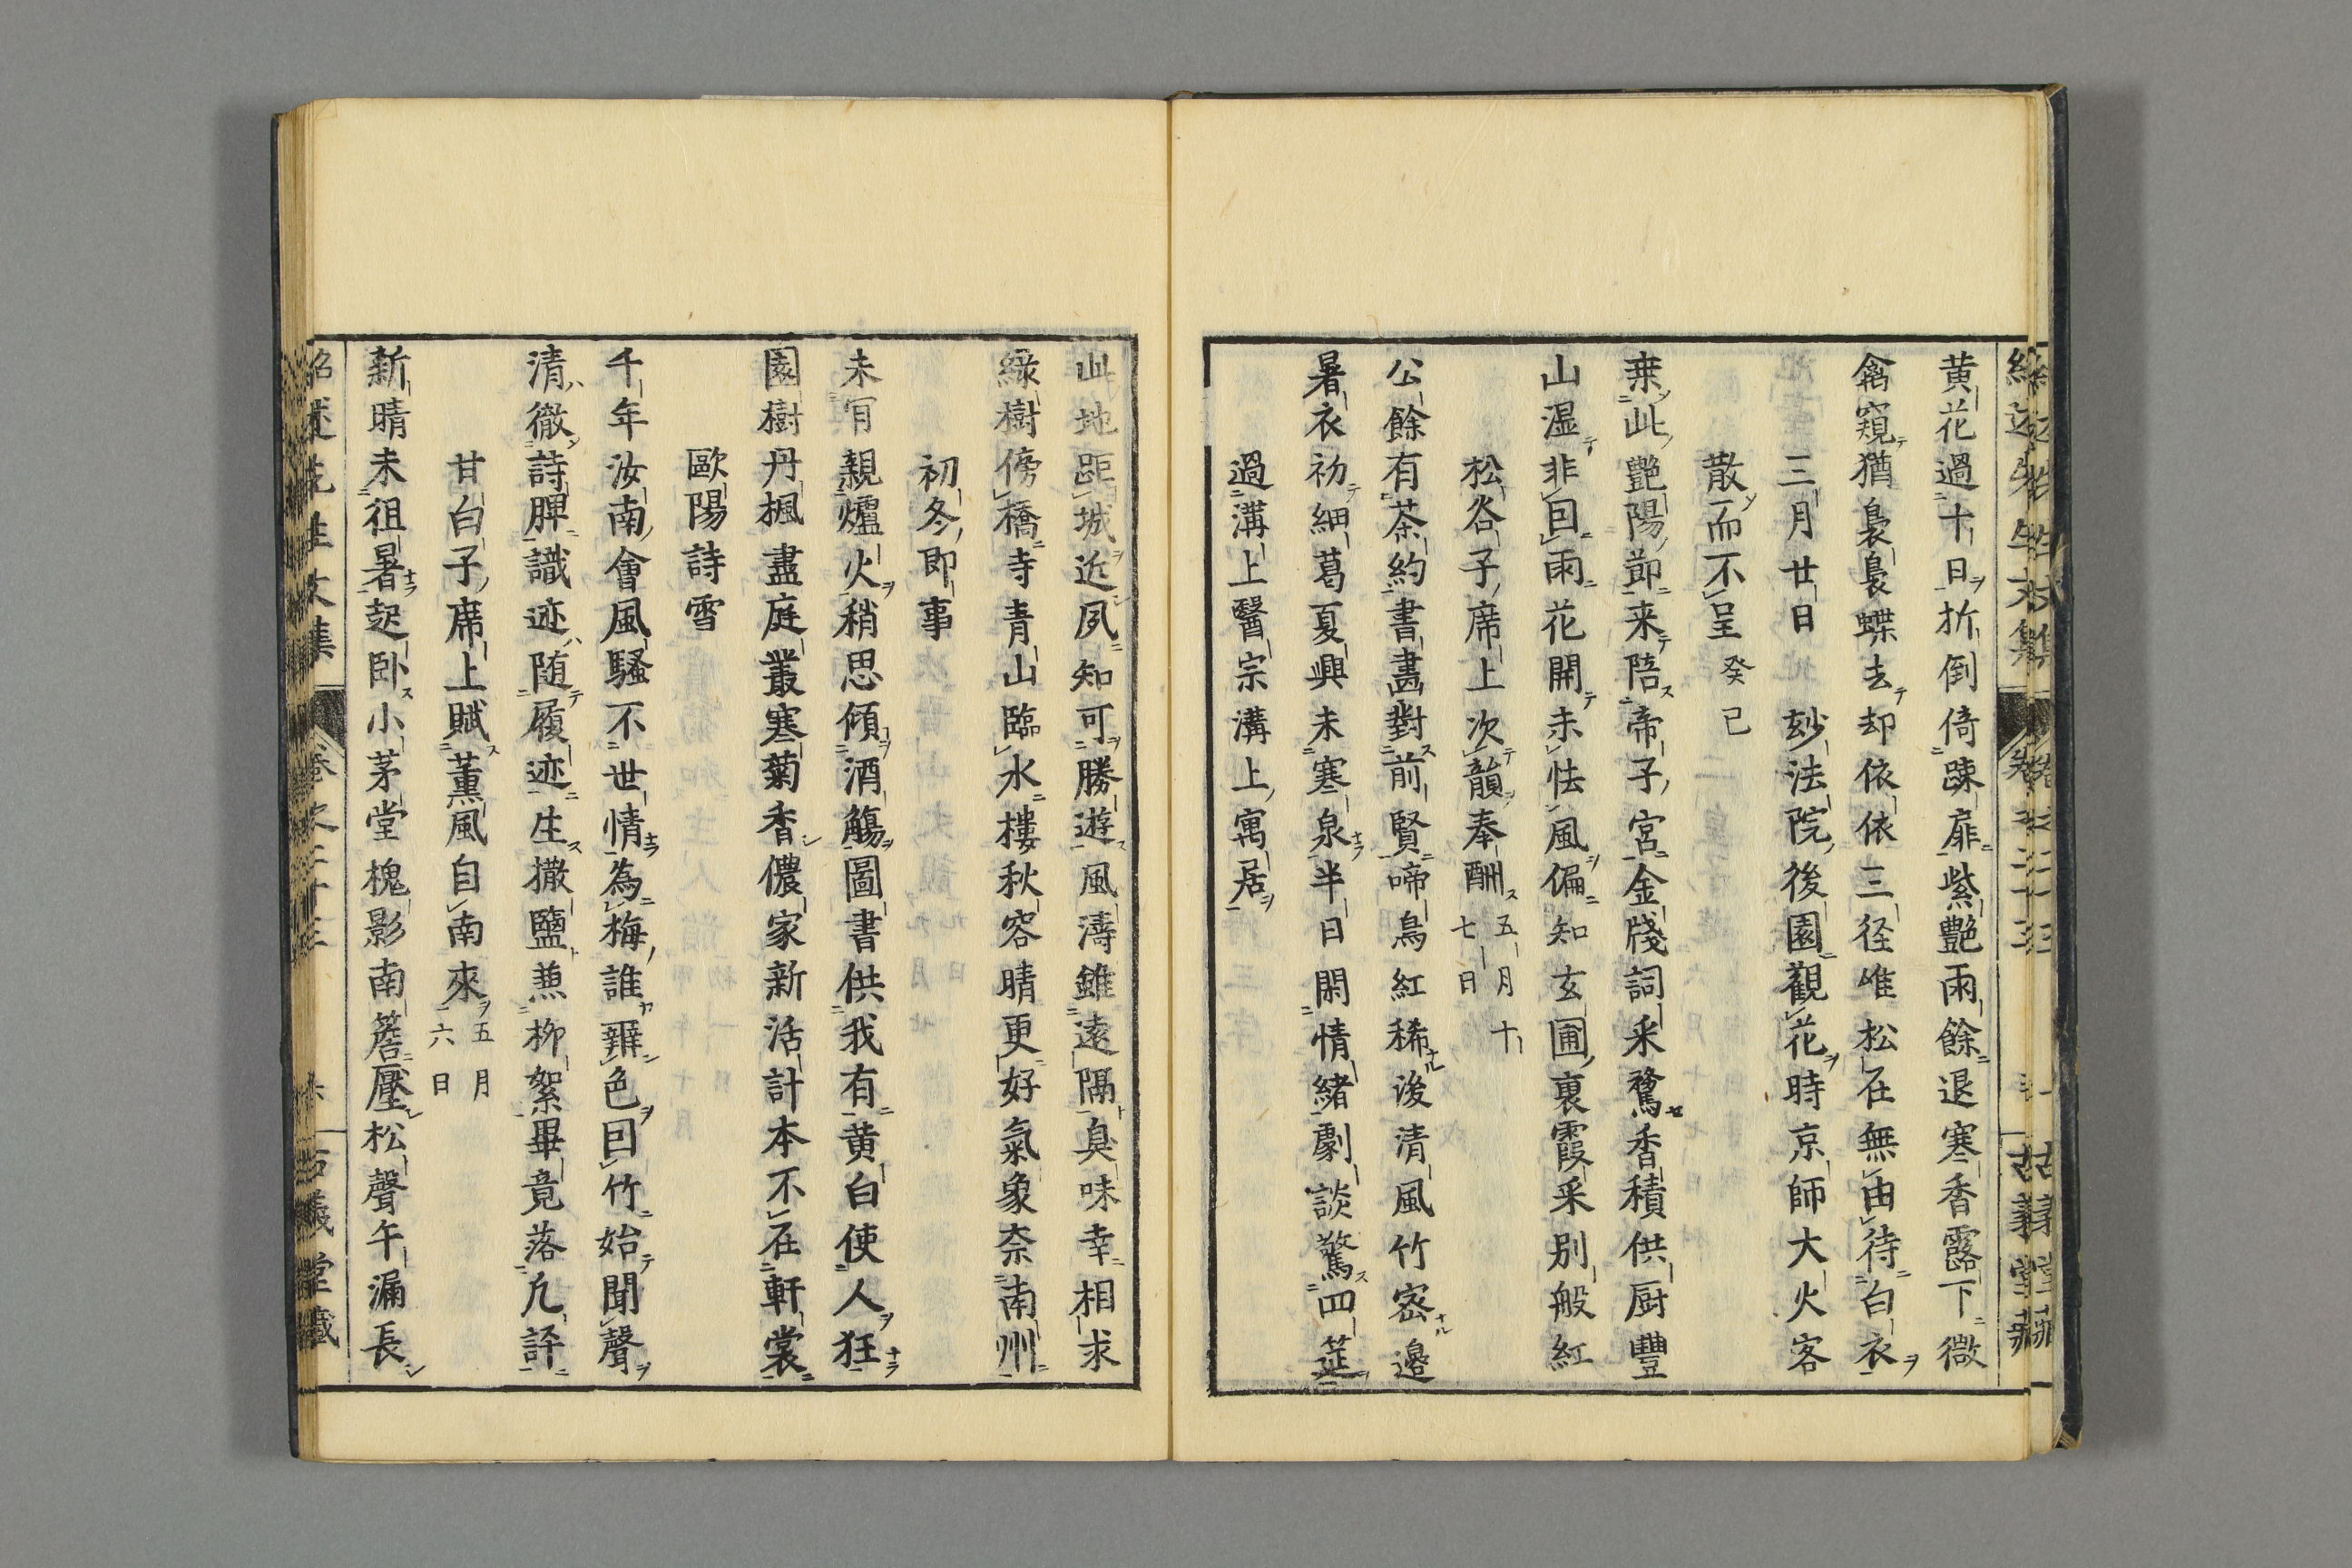 黄花過十日折倒倚踈扉紫艶雨餘退寒香露下微
禽窺猶裊裊蝶去却依依三径唯松在無由待白衣
三月廿日玅法院後園觀花時京師大火客
散而不呈癸巳
乗此艶陽節来陪帝子宮金牋詞采騖香積供厨豐
山湿非回雨花開未怯風偏知玄圃裏霞采別般紅
松谷子席上次韻奉酬五月十
七日
公餘有茶約書畫對前賢啼鳥紅稀後清風竹密邉
暑衣初細葛夏興未寒泉半日閑情緒劇談驚四筵
過溝上醫宗溝上寓居
此地距城近夙知可勝遊風濤雖遠隔臭味幸相求
緑樹傍橋寺青山臨水樓秋容晴更好氣象奈南州
初冬即事
未有親爐火稍思傾酒觴圖書供我有黄白使人狂
園樹丹楓盡庭叢寒菊香儂家新活計本不在軒裳
歐陽詩雪
千年汝南會風騷不世情為梅誰辨色回竹始聞聲
清徹詩脾識迹随履迹生撒鹽兼柳絮畢竟落凢評
甘白子席上賦薫風自南來五月
六日
新晴未徂暑起卧小茅堂槐影南簷壓松聲午漏長